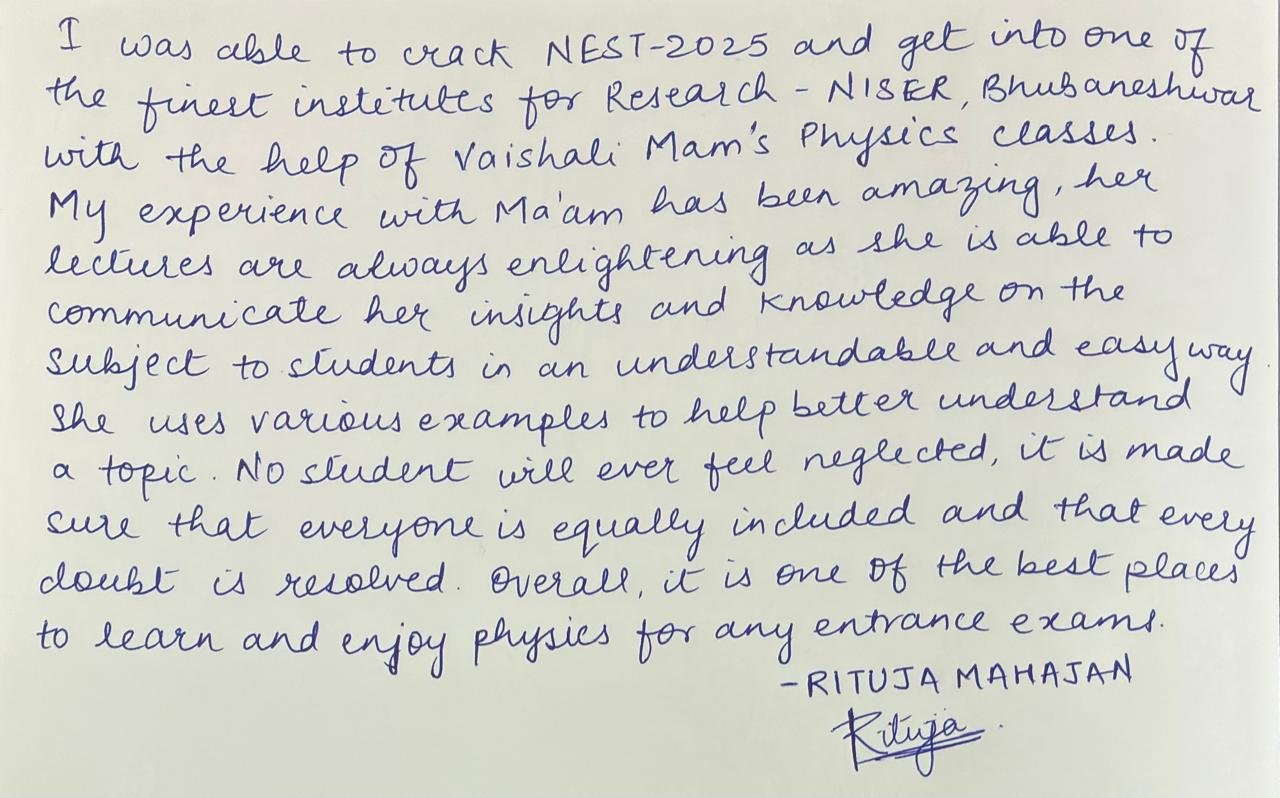 I was able to crack NEST-2025 and get into one of
the finest institutes for Research - NISER, Bhubaneshwar
with the help of Vaishali Mam's Physics classes.
My experience with Ma'am has been amazing, her
lectures are always enlightening as she is able to
communicate her insights and knowledge on the
subject to students in an understandable and easy way.
She uses various examples to help better understand
a topic. No student will ever feel neglected, it is made
sure that everyone is equally included and that every
doubt is resolved. Overall, it is one of the best places
to learn and enjoy physics for any entrance exams.
-RITUJA MAHAJAN
Rituja